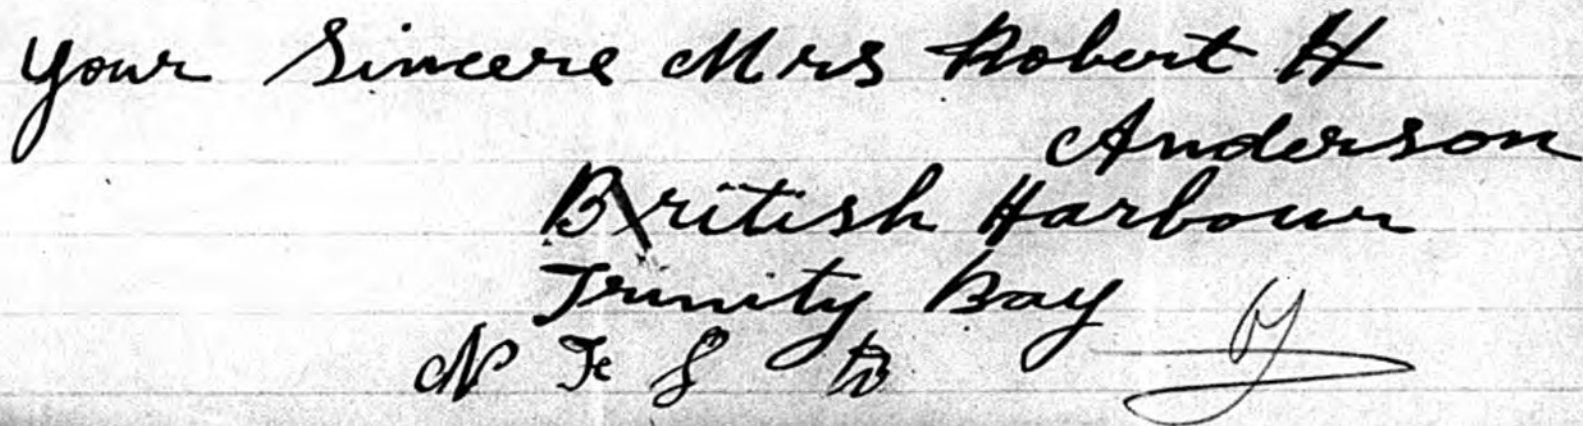 Your Sincere Mrs Robert H
Anderson
British Harbour
Trinity Bay
N F L D